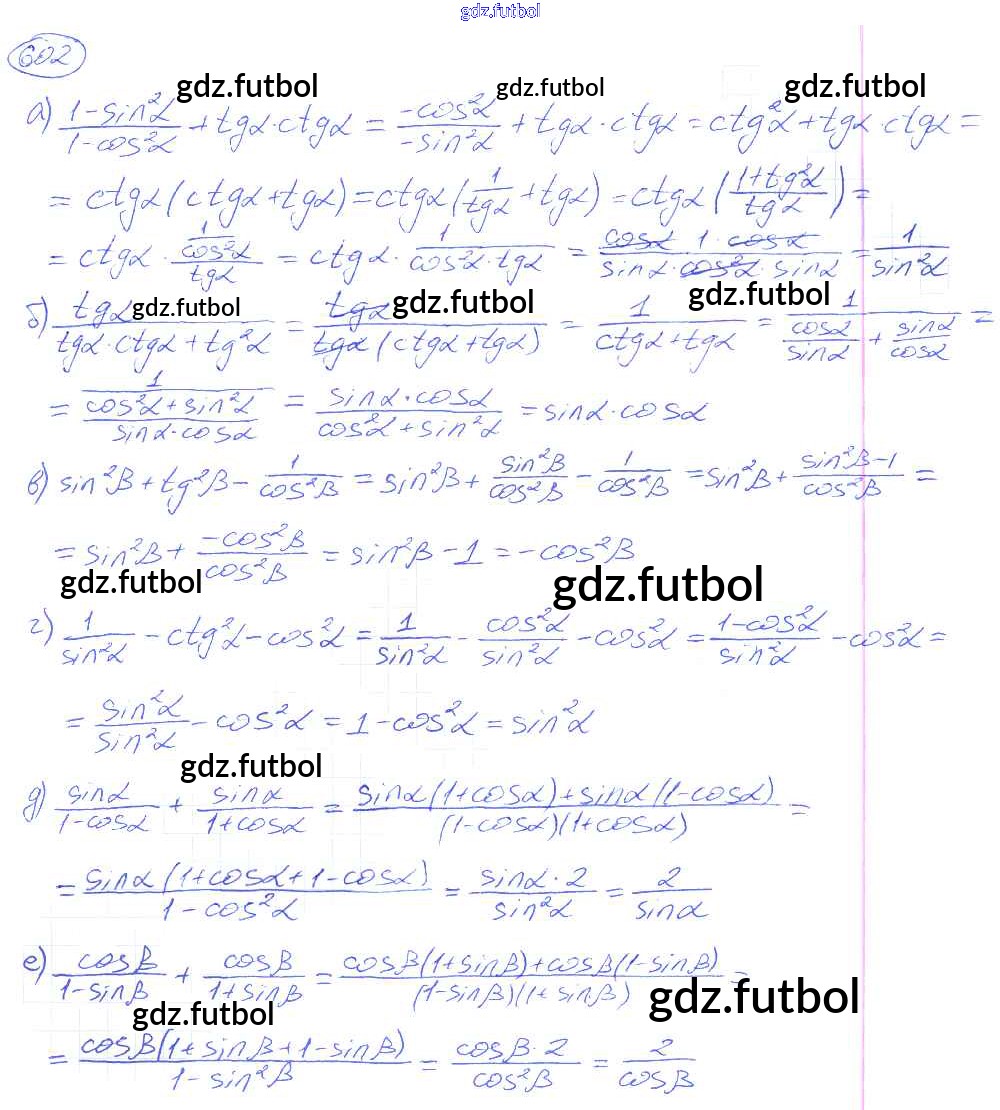 gdz.futbol
602
gdz.futbol gdz.futbol gdz.futbol
а) (1-sin²α)/(1-cos²α) + tgα·ctgα = (-cos²α)/(-sin²α) + tgα·ctgα = ctg²α + tgα·ctgα =
= ctgα(ctgα+tgα) = ctgα(1/tgα + tgα) = ctgα((1+tg²α)/tgα) =
= ctgα · (1/cos²α)/tgα = ctgα · 1/(cos²α·tgα) = (cosα · 1 · cosα)/(sinα·cos²α·sinα) = 1/sin²α
gdz.futbol gdz.futbol gdz.futbol
б) tgα/(tgα·ctgα + tg²α) = tgα/(tgα(ctgα+tgα)) = 1/(ctgα+tgα) = 1/(cosα/sinα + sinα/cosα) =
= 1/((cos²α+sin²α)/(sinα·cosα)) = (sinα·cosα)/(cos²α+sin²α) = sinα·cosα
в) sin²β + tg²β - 1/cos²β = sin²β + sin²β/cos²β - 1/cos²β = sin²β + (sin²β-1)/cos²β =
= sin²β + (-cos²β)/cos²β = sin²β - 1 = -cos²β
gdz.futbol gdz.futbol
г) 1/sin²α - ctg²α - cos²α = 1/sin²α - cos²α/sin²α - cos²α = (1-cos²α)/sin²α - cos²α =
= sin²α/sin²α - cos²α = 1 - cos²α = sin²α
gdz.futbol
д) sinα/(1-cosα) + sinα/(1+cosα) = (sinα(1+cosα)+sinα(1-cosα))/((1-cosα)(1+cosα)) =
= (sinα(1+cosα+1-cosα))/(1-cos²α) = (sinα·2)/sin²α = 2/sinα
е) cosβ/(1-sinβ) + cosβ/(1+sinβ) = (cosβ(1+sinβ)+cosβ(1-sinβ))/((1-sinβ)(1+sinβ)) =
gdz.futbol gdz.futbol
= (cosβ(1+sinβ+1-sinβ))/(1-sin²β) = (cosβ·2)/cos²β = 2/cosβ